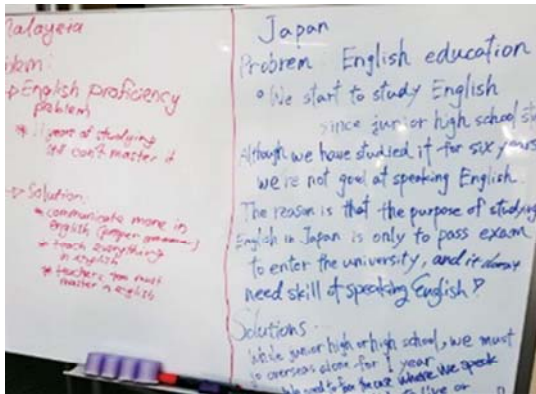 Malaysia
blem:
→ English proficiency
problem
* 11 years of studying
still can't master it
→ Solution:
* communicate more in
english (proper
* teach everything
in english
* teachers too must
master in english
Japan
Probrem : English education
• We start to study English
since junior high school
Although we have studied it for six years
we're not goal at speaking English.
The reason is that the purpose of studying
English in Japan is only to pass exam
to enter the university, and it
need skill of speaking English!
Solutions
While junior high or high school, we must
overseas alone for 1 year
where we speak
live or